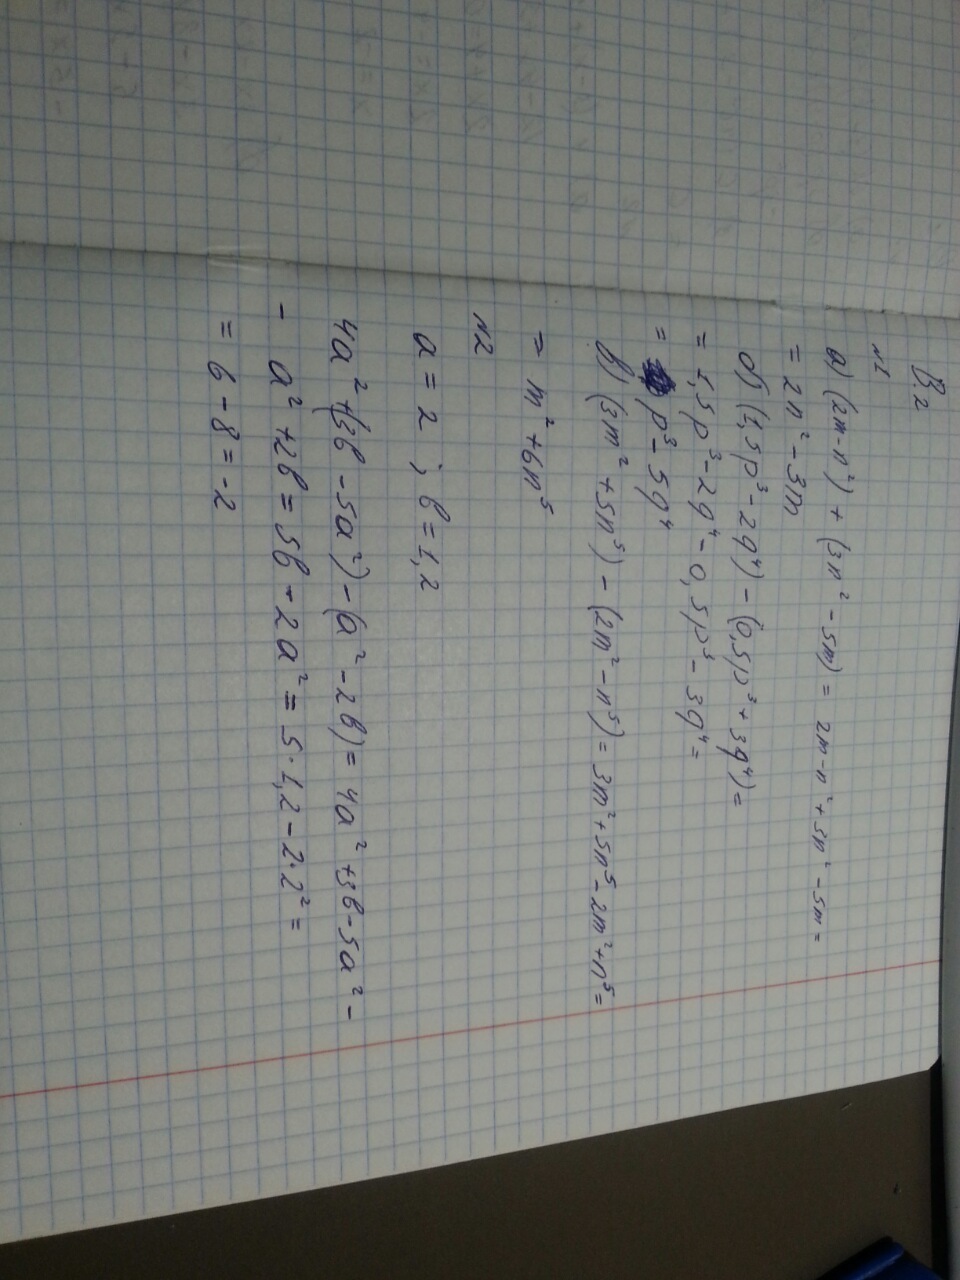 В.2
№1
а) (2m-n²) + (3n² - 5m) = 2m-n²+3n² -5m =
= 2n² - 3m
б) (1,5p³ - 2q⁴) - (0,5p³ + 3q⁴) =
= 1,5p³ - 2q⁴ - 0,5p³ - 3q⁴ =
= p³ - 5q⁴
в) (3m² + 5n⁵) - (2m² - n⁵) = 3m² + 5n⁵ - 2m² + n⁵ =
= m² + 6n⁵
№2
a = 2 ; b = 1,2
4a² + (3b - 5a²) - (a² - 2b) = 4a² + 3b - 5a² -
- a² + 2b = 5b - 2a² = 5·1,2 - 2·2² =
= 6 - 8 = -2